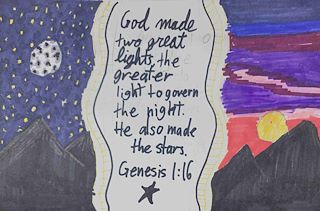 God made
two great
lights, the
greater
light to govern
the night.
He also made
the stars.
Genesis 1:16